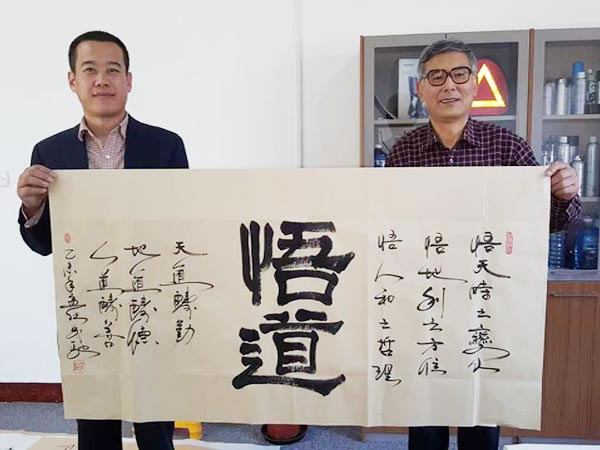 悟天時之變化
悟地利之方位
悟人和之哲理
悟道
天道醻勤
地道醻德
人道醻善
乙未年